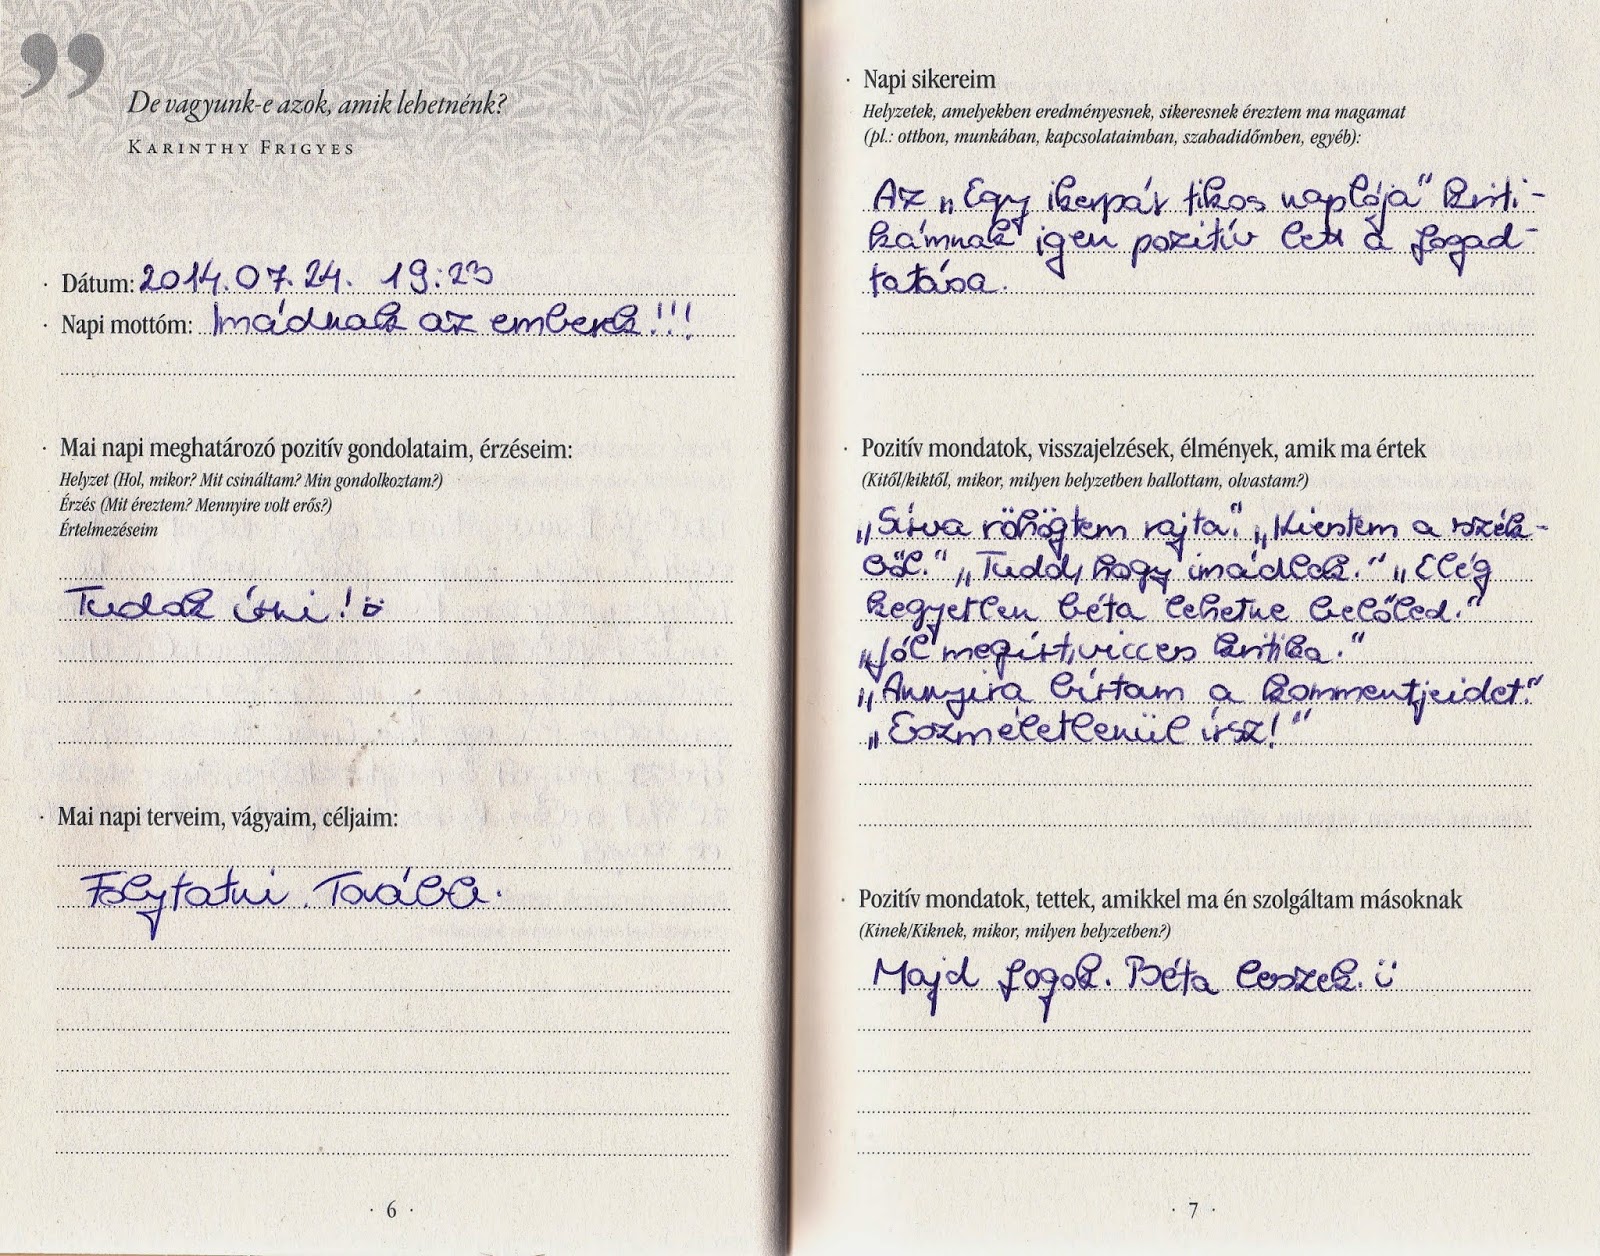 ”
De vagyunk-e azok, amik lehetnénk?
KARINTHY FRIGYES
· Dátum: 2014.07.24. 19:23
· Napi mottóm: Imádnak az emberek!!!
· Mai napi meghatározó pozitív gondolataim, érzéseim:
Helyzet (Hol, mikor? Mit csináltam? Min gondolkoztam?)
Érzés (Mit éreztem? Mennyire volt erős?)
Értelmezéseim
Tudok írni! :)
· Mai napi terveim, vágyaim, céljaim:
Folytatni. Tovább.
· 6 ·
· Napi sikereim
Helyzetek, amelyekben eredményesnek, sikeresnek éreztem ma magamat
(pl.: otthon, munkában, kapcsolataimban, szabadidőmben, egyéb):
Az „Egy ikerpár titkos naplója” kriti-
kámnak igen pozitív lett a fogad-
tatása.
· Pozitív mondatok, visszajelzések, élmények, amik ma értek
(Kitől/kiktől, mikor, milyen helyzetben hallottam, olvastam?)
„Sírva röhögtem rajta.” „Kiestem a szék-
ből.” „Tudd, hogy imádlak.” „Elég
kegyetlen béta lehetne belőled.”
„Jól megírt, vicces kritika.”
„Annyira bírtam a kommentjeidet.”
„Eszméletlenül írsz!”
· Pozitív mondatok, tettek, amikkel ma én szolgáltam másoknak
(Kinek/Kiknek, mikor, milyen helyzetben?)
Majd fogok. Béta leszek. :)
· 7 ·